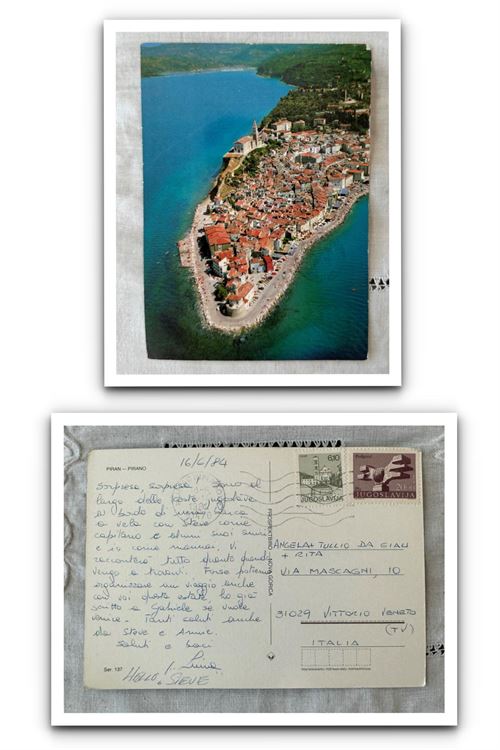 PIRAN – PIRANO
16/6/84
Sorpresa, sorpresa! Sono al
largo delle coste jugoslave
a bordo di una barca
a vela con Steve come
capitano e alcuni suoi amici
e io come mamma. Vi
racconterò tutto quanto quando
vengo a trovarvi. Forse potremo
organizzare un viaggio anche
con voi questa estate. Ho già
scritto a Gabriele se vuole
venire. Tanti saluti anche
da Steve e Annie.
Saluti e baci
HELLO, STEVE
Ser. 137
NOVA GORICA
610
JUGOSLAVIJA
20
JUGOSLAVIJA
ANGELA + TULLIO DA GIAU
+ RITA
VIA MASCAGNI, 10
31029 VITTORIO VENETO
(TV)
ITALIA